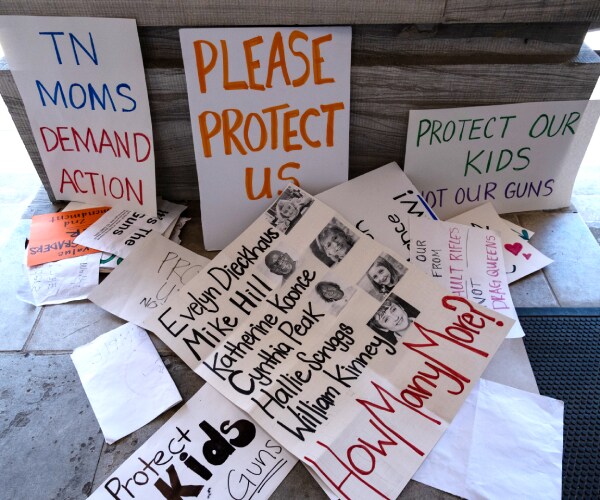 TN
MOMS
DEMAND
ACTION
PLEASE
PROTECT
US
PROTECT OUR
KIDS
NOT OUR GUNS
Evelyn Dieckhaus
Mike Hill
Katherine Koonce
Cynthia Peak
Hallie Scruggs
William Kinney
How Many More?
OUR
FROM
AULT RIFLES
NOT
DRAG QUEENS
Protect
Kids
Guns